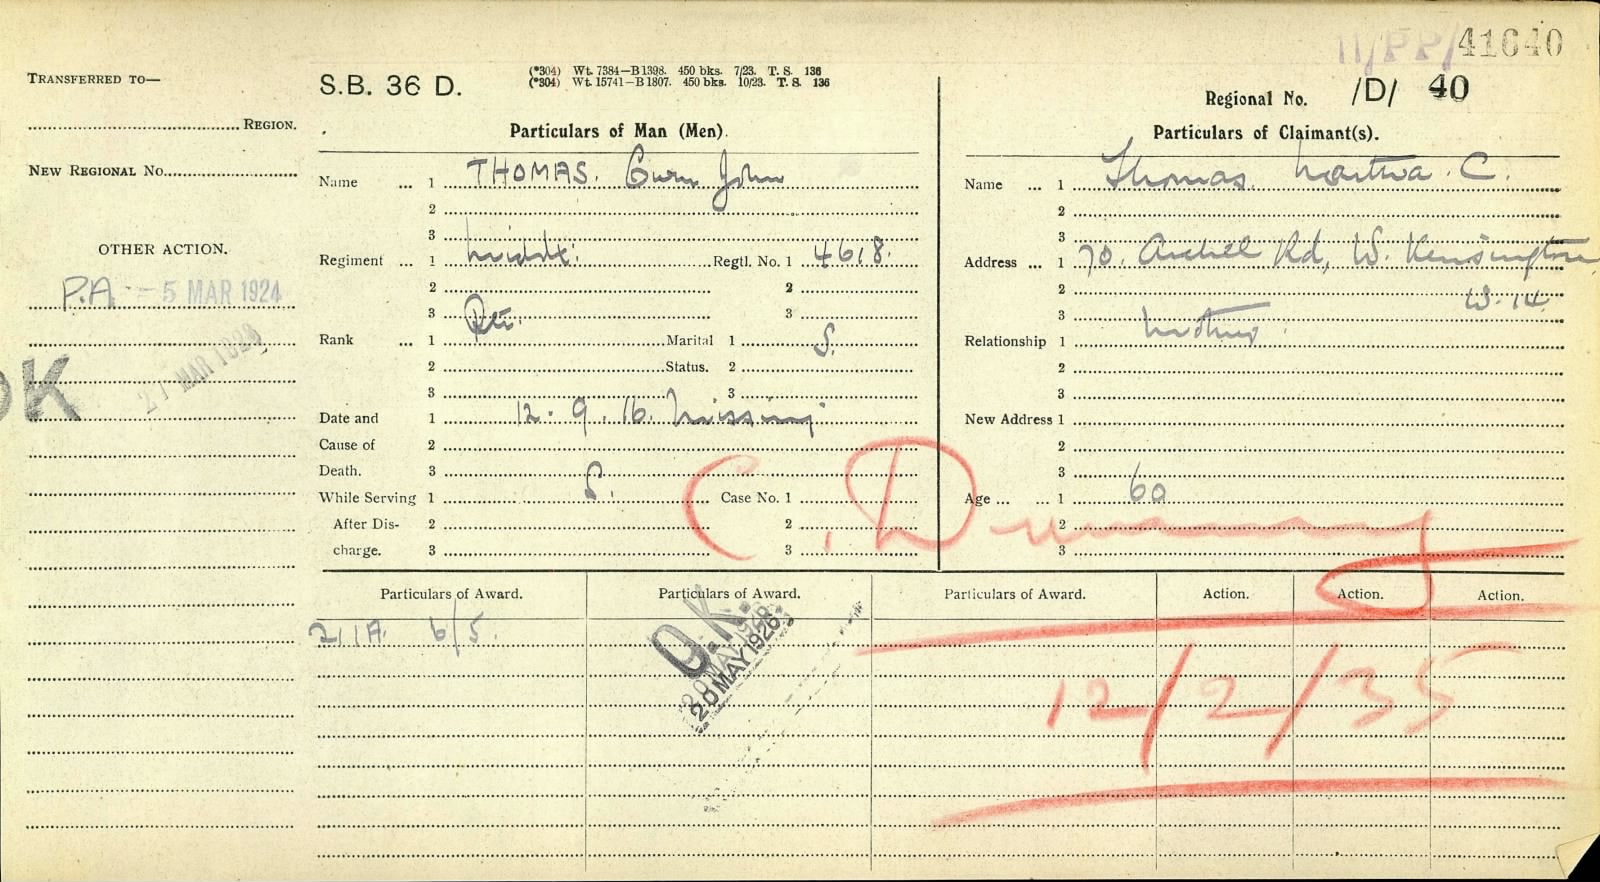 11/PP/ 41640
TRANSFERRED TO—
REGION.
NEW REGIONAL NO.
OTHER ACTION.
P.A. - 5 MAR 1924
OK
S.B. 36 D.
(*304) Wt. 7384—B1398. 450 bks. 7/23. T. S. 136
(*304) Wt. 15741—B1807. 450 bks. 10/23. T. S. 136
Particulars of Man (Men).
Name ... 1 THOMAS. John
2
3
Regiment ... 1 Middx: Regtl. No. 1 4618.
2 2
3 3
Rank ... 1 Pte. Marital 1 S.
2 Status. 2
3 3
Date and 1 12. 9. 16. Missing
Cause of 2
Death. 3
While Serving 1 S. Case No. 1
After Dis- 2 2
charge. 3 3
Regional No. /D/ 40
Particulars of Claimant(s).
Name ... 1 Thomas. C.
2
3
Address ... 1 70. Rd, W. Kensington
2 W. 14
3
Relationship 1 Mother
2
3
New Address 1
2
3
Age ... ... 1 60
2
3
C. Dummy
Particulars of Award. Particulars of Award. Particulars of Award. Action. Action. Action.
211A. 6/5.
O.K.
20 MAY 1926
12/2/35